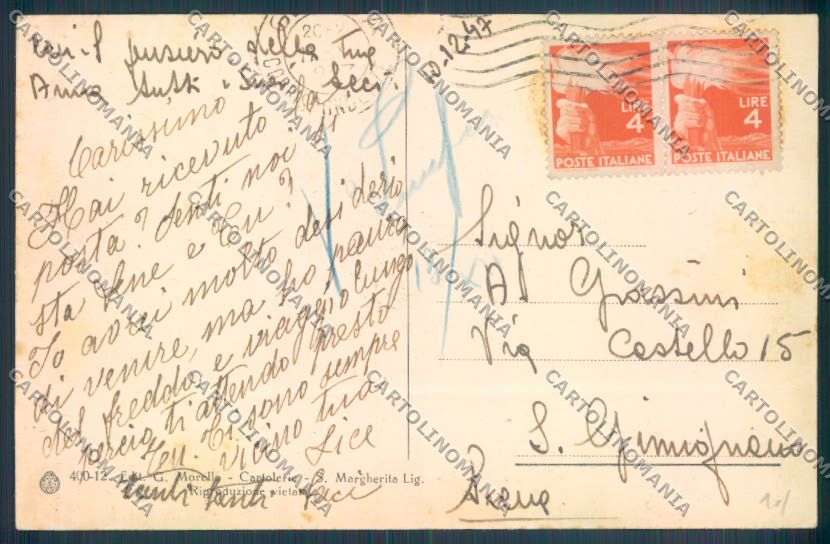 2.12.47
della tua
Anna tutti
Carissimo
Hai ricevuto la
posta? Senti noi si
sta bene e tu?
Io avrei molto desiderio
di venire, ma ho paura
del freddo e viaggio lungo
perciò ti attendo presto
Ti sono sempre
vicino tua
Lice
tanti tanti baci
400-12 Edit. G. Morello - Cartoleria - S. Margherita Lig.
Riproduzione vietata
LIRE
4
POSTE ITALIANE
LIRE
4
POSTE ITALIANE
Signor
A Grassini
Via Castello 15
S. Gimignano
CARTOLINOMANIA